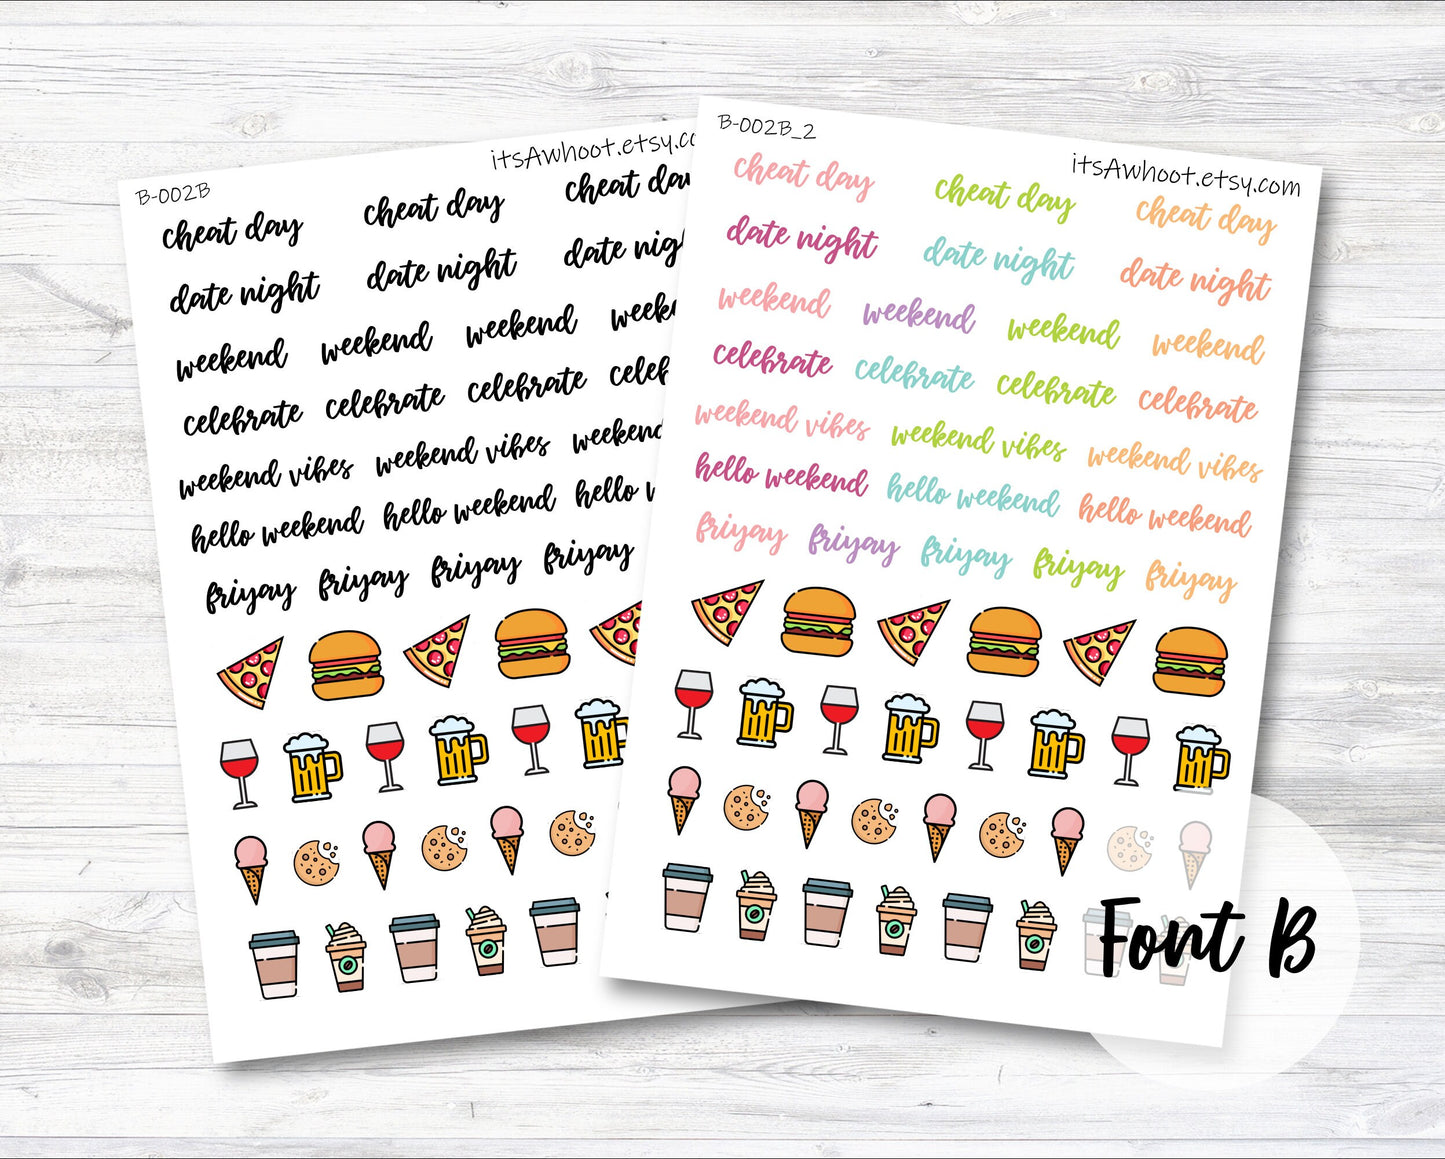 B-002B
itsAwhoot.etsy.co
cheat day cheat day cheat day
date night date night date nigh
weekend weekend weekend weeke
celebrate celebrate celebrate celeb
weekend vibes weekend vibes weekend
hello weekend hello weekend hello w
friyay friyay friyay friyay
B-002B_2
itsAwhoot.etsy.com
cheat day cheat day cheat day
date night date night date night
weekend weekend weekend weekend
celebrate celebrate celebrate celebrate
weekend vibes weekend vibes weekend vibes
hello weekend hello weekend hello weekend
friyay friyay friyay friyay friyay
Font B